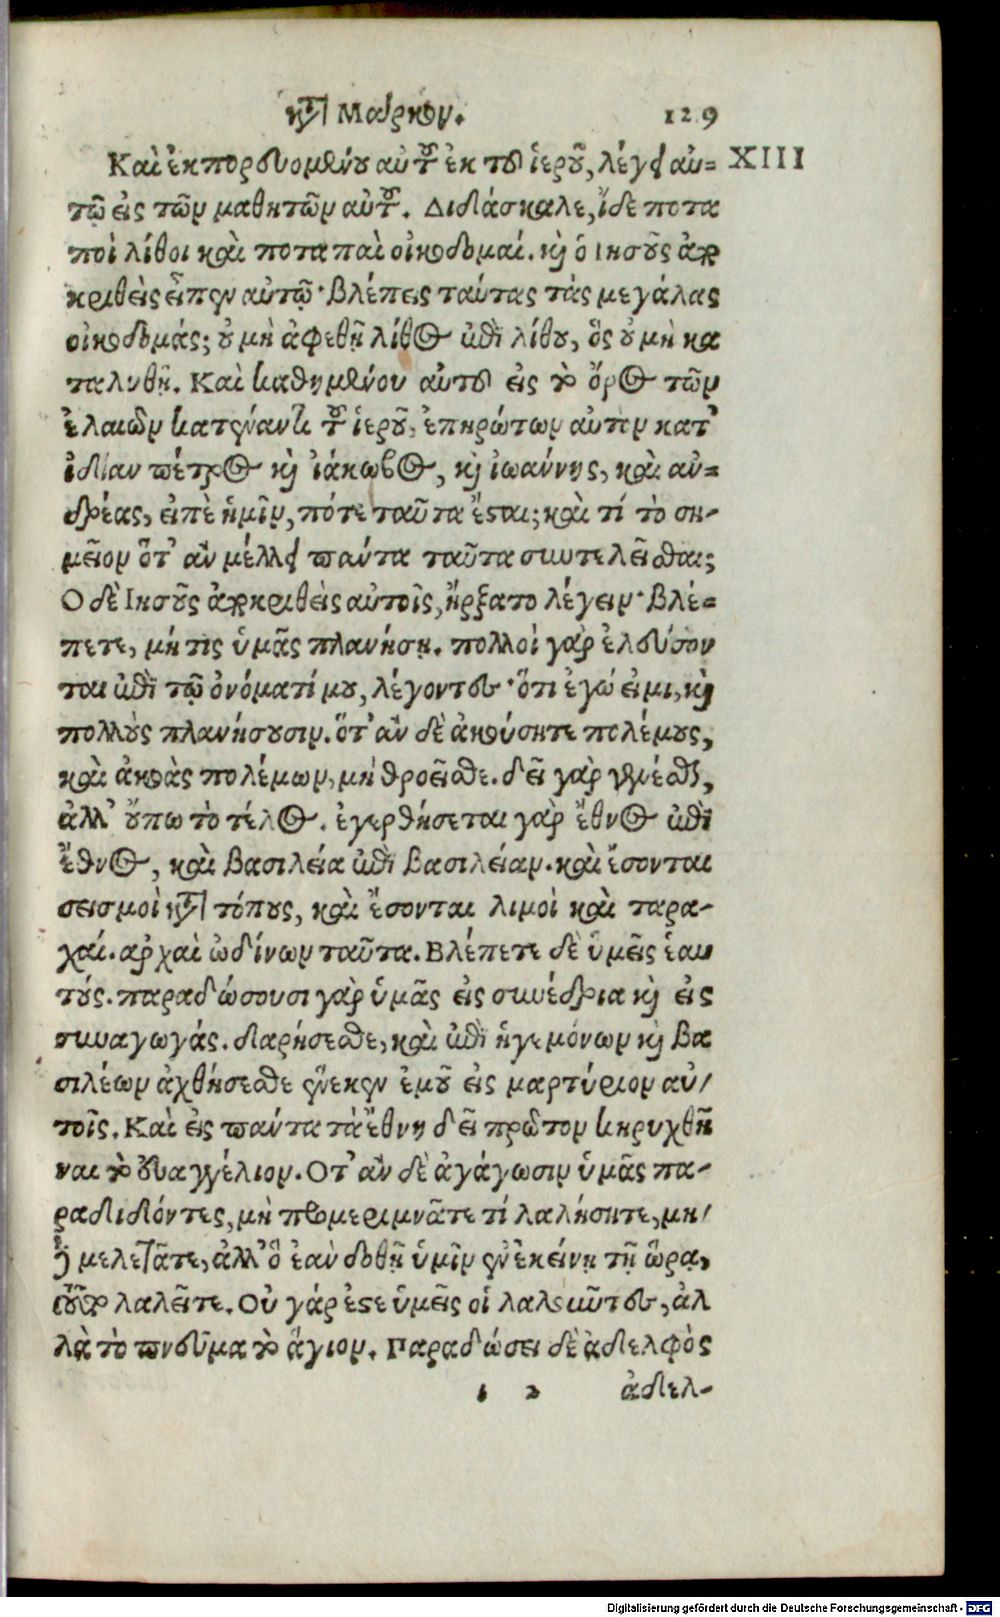 κατὰ Μάρκον. 129
Καὶ ἐκπορευομένου αὐτοῦ ἐκ τοῦ ἱεροῦ, λέγει αὐ= XIII
τῷ εἷς τῶν μαθητῶν αὐτοῦ. Διδάσκαλε, ἴδε ποτα
ποὶ λίθοι καὶ ποταπαὶ οἰκοδομαί. καὶ ὁ Ιησοῦς ἀπο
κριθεὶς εἶπεν αὐτῷ· βλέπεις ταύτας τὰς μεγάλας
οἰκοδομάς; οὐ μὴ ἀφεθῇ λίθος ἐπὶ λίθου, ὃς οὐ μὴ κα
ταλυθῇ. Καὶ καθημένου αὐτοῦ εἰς τὸ ὄρος τῶν
ἐλαιῶν κατέναντι τοῦ ἱεροῦ, ἐπηρώτων αὐτὸν κατ'
ἰδίαν πέτρος καὶ ἰάκωβος, καὶ ἰωάννης, καὶ αν=
δρέας, εἰπὲ ἡμῖν, πότε ταῦτα ἔσται; καὶ τί τὸ ση-
μεῖον ὅτ' ἂν μέλλει πάντα ταῦτα συντελεῖσθαι;
Ο δὲ Ιησοῦς ἀποκριθεὶς αὐτοῖς, ἤρξατο λέγειν· βλέ=
πετε, μή τις ὑμᾶς πλανήσῃ. πολλοὶ γὰρ ἐλεύσον
ται ἐπὶ τῷ ὀνόματί μου, λέγοντες· ὅτι ἐγώ εἰμι, καὶ
πολλοὺς πλανήσουσιν. ὅτ' ἂν δὲ ἀκούσητε πολέμους,
καὶ ἀκοὰς πολέμων, μὴ θροεῖσθε. δεῖ γὰρ γενέσθαι,
ἀλλ' οὔπω τὸ τέλος. ἐγερθήσεται γὰρ ἔθνος ἐπὶ
ἔθνος, καὶ βασιλεία ἐπὶ βασιλείαν. καὶ ἔσονται
σεισμοὶ κατὰ τόπους, καὶ ἔσονται λιμοὶ καὶ ταρα-
χαί. ἀρχαὶ ὠδίνων ταῦτα. Βλέπετε δὲ ὑμεῖς ἑαυ
τούς. παραδώσουσι γὰρ ὑμᾶς εἰς συνέδρια καὶ εἰς
συναγωγάς. δαρήσεσθε, καὶ ἐπὶ ἡγεμόνων καὶ βα
σιλέων ἀχθήσεσθε ἕνεκεν ἐμοῦ εἰς μαρτύριον αὐ/
τοῖς. Καὶ εἰς πάντα τὰ ἔθνη δεῖ πρῶτον κηρυχθῆ
ναι τὸ εὐαγγέλιον. Οτ' ἂν δὲ ἀγάγωσιν ὑμᾶς πα-
ραδιδόντες, μὴ προμεριμνᾶτε τί λαλήσητε, μη/
δὲ μελετᾶτε, ἀλλ' ὃ ἐὰν δοθῇ ὑμῖν ἐν ἐκείνῃ τῇ ὥρᾳ,
τοῦτο λαλεῖτε. Οὐ γάρ ἐστε ὑμεῖς οἱ λαλοῦντες, ἀλ
λὰ τὸ πνεῦμα τὸ ἅγιον. Παραδώσει δὲ ἀδελφὸς
ι 2 ἀδελ-
Digitalisierung gefördert durch die Deutsche Forschungsgemeinschaft - DFG